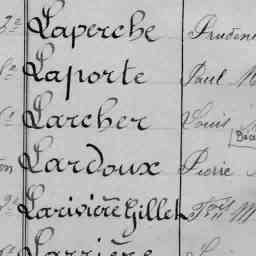 Laperche Pruden
Laporte Paul
Larcher Louis
Lardoux Pierre
Larivière Gillet
Larrière